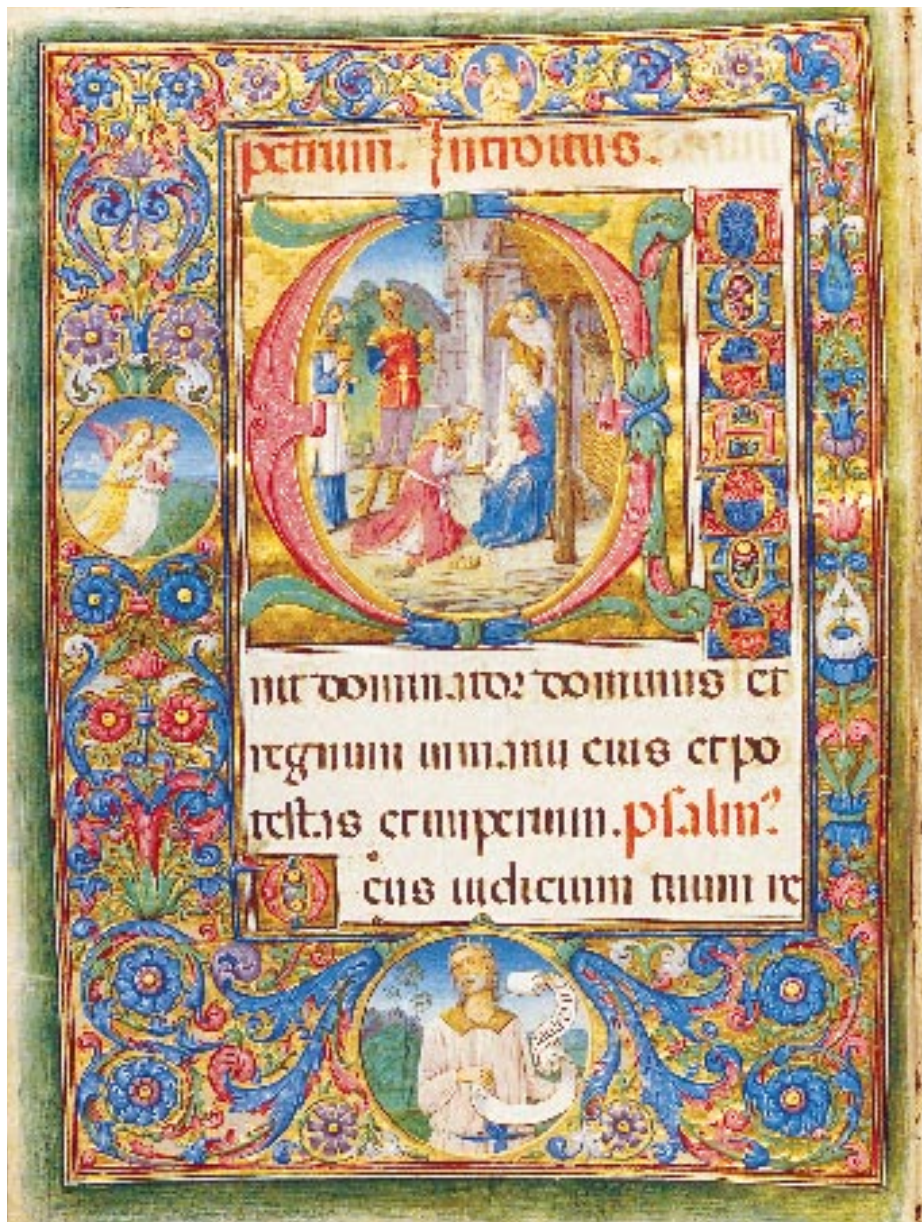 petrum. Introitus.
ECCEADVE
nit dominator dominus et
regnum in manu eius et po
testas et imperium. psalm⁹
Deus iudicium tuum re